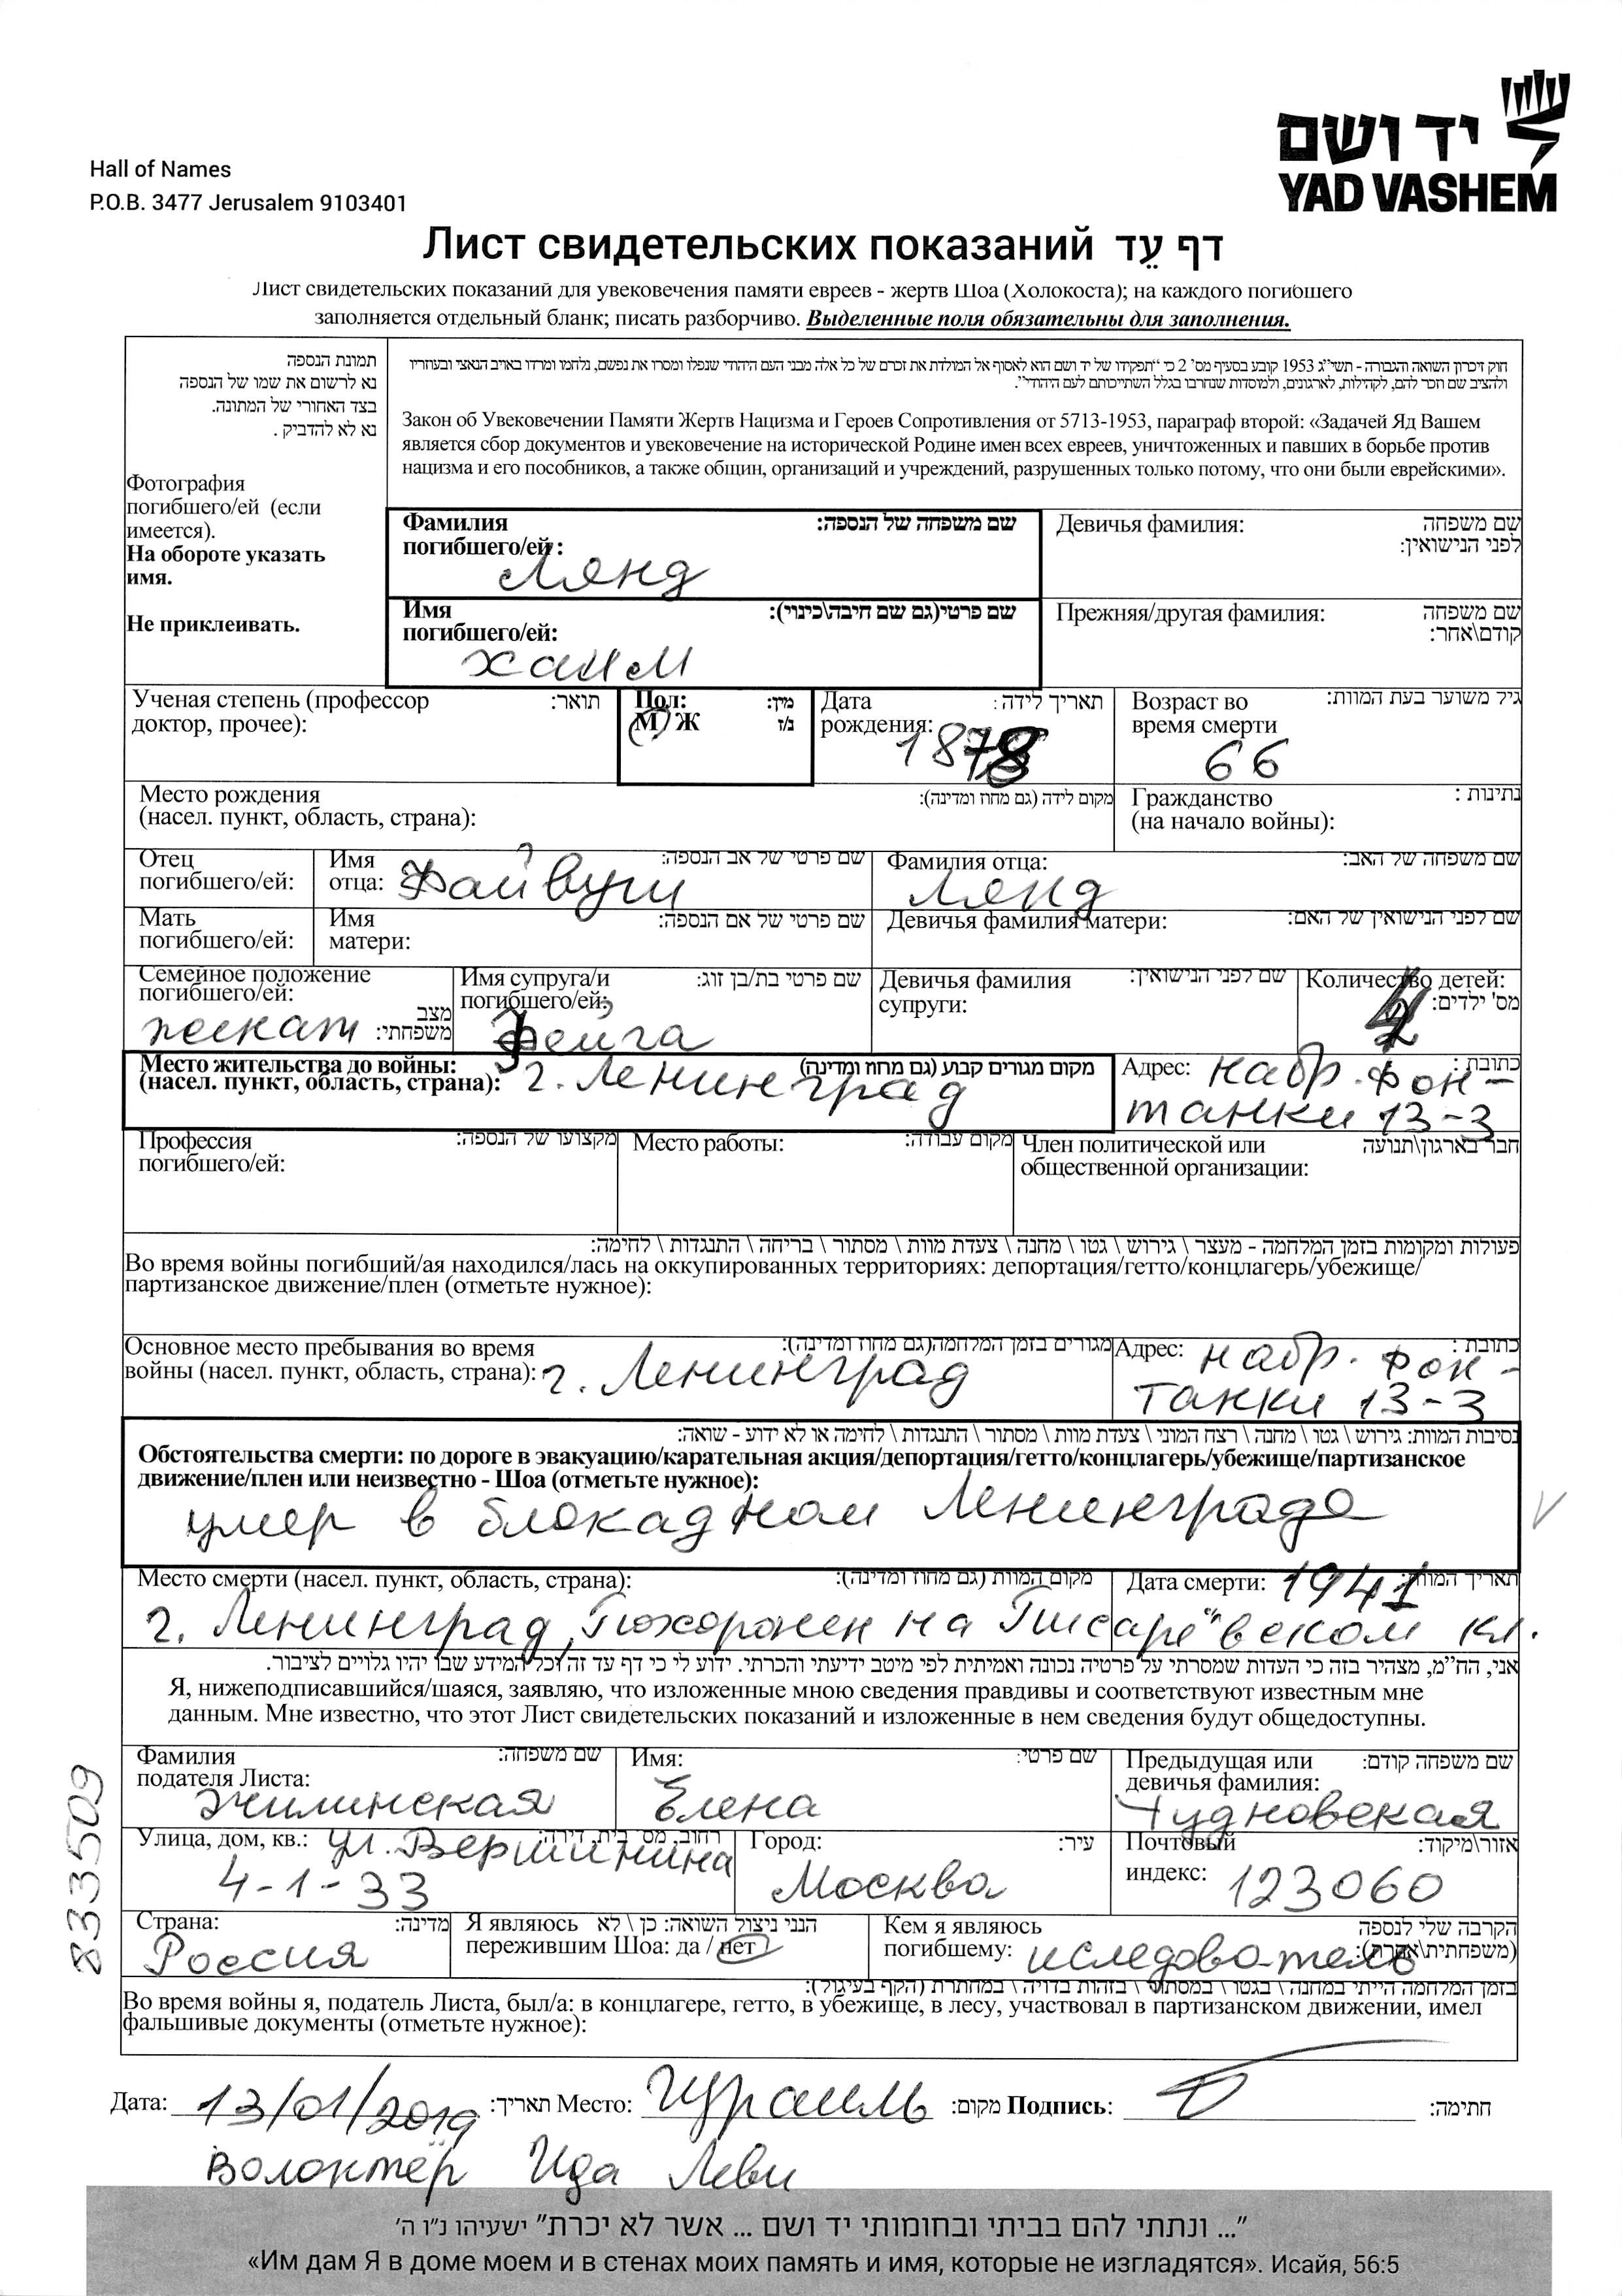 יד ושם
YAD VASHEM
Hall of Names
P.O.B. 3477 Jerusalem 9103401
Лист свидетельских показаний דף עֵד
Лист свидетельских показаний для увековечения памяти евреев - жертв Шоа (Холокоста); на каждого погибшего
заполняется отдельный бланк; писать разборчиво. Выделенные поля обязательны для заполнения.
תמונת הנספה
נא לרשום את שמו של הנספה
בצד האחורי של התמונה.
נא לא להדביק .
Фотография
погибшего/ей (если
имеется).
На обороте указать
имя.
Не приклеивать.
חוק זיכרון השואה והגבורה - תשי"ג 1953 קובע בסעיף מס' 2 כי "תפקידו של יד ושם הוא לאסוף אל המולדת את זכרם של כל אלה מבני העם היהודי שנפלו ומסרו את נפשם, נלחמו ומרדו באויב הנאצי ובעוזריו
ולהציב שם וזכר להם, לקהילות, לארגונים, ולמוסדות שנחרבו בגלל השתייכותם לעם היהודי".
Закон об Увековечении Памяти Жертв Нацизма и Героев Сопротивления от 5713-1953, параграф второй: «Задачей Яд Вашем
является сбор документов и увековечение на исторической Родине имен всех евреев, уничтоженных и павших в борьбе против
нацизма и его пособников, а также общин, организаций и учреждений, разрушенных только потому, что они были еврейскими».
Фамилия שם משפחה של הנספה:
погибшего/ей:
Лянд
Девичья фамилия: שם משפחה
לפני הנישואין:
Имя שם פרטי(גם שם חיבה\כינוי):
погибшего/ей:
Хаим
Прежняя/другая фамилия: שם משפחה
קודם\אחר:
Ученая степень (профессор תואר:
доктор, прочее):
Пол: מין:
М/Ж ז/נ
Дата תאריך לידה:
рождения: 1878
Возраст во גיל משוער בעת המוות:
время смерти
66
Место рождения מקום לידה (גם מחוז ומדינה):
(насел. пункт, область, страна):
Гражданство נתינות :
(на начало войны):
Отец
погибшего/ей:
Имя שם פרטי של אב הנספה:
отца: Файвуш
Фамилия отца: שם משפחה של האב:
Лянд
Мать
погибшего/ей:
Имя שם פרטי של אם הנספה:
матери:
Девичья фамилия матери: שם לפני הנישואין של האם:
Семейное положение
погибшего/ей: מצב
משפחתי:
женат
Имя супруга/и שם פרטי בת/בן זוג:
погибшего/ей:
Фейга
Девичья фамилия שם לפני הנישואין:
супруги:
Количество детей:
מס' ילדים:
Место жительства до войны: מקום מגורים קבוע (גם מחוז ומדינה)
(насел. пункт, область, страна): г. Ленинград
Адрес: כתובת :
набр. Фон-
танки 13-3
Профессия מקצועו של הנספה:
погибшего/ей:
Место работы: מקום עבודה:
Член политической или חבר בארגון\תנועה
общественной организации:
פעולות ומקומות בזמן המלחמה - מעצר \ גירוש \ גטו \ מחנה \ צעדת מוות \ מסתור \ בריחה \ התנגדות \ לחימה:
Во время войны погибший/ая находился/лась на оккупированных территориях: депортация/гетто/концлагерь/убежище/
партизанское движение/плен (отметьте нужное):
Основное место пребывания во время מגורים בזמן המלחמה(גם מחוז ומדינה):
войны (насел. пункт, область, страна): г. Ленинград
Адрес: כתובת :
набр. Фон-
танки 13-3
נסיבות המוות: גירוש \ גטו \ מחנה \ רצח המוני \ צעדת מוות \ מסתור \ התנגדות \ לחימה או לא ידוע - שואה:
Обстоятельства смерти: по дороге в эвакуацию/карательная акция/депортация/гетто/концлагерь/убежище/партизанское
движение/плен или неизвестно - Шоа (отметьте нужное):
умер в блокадном Ленинграде
Место смерти (насел. пункт, область, страна): מקום המוות (גם מחוז ומדינה):
Дата смерти: 1941 תאריך המוות:
г. Ленинград, Похоронен на Писарёвском кл.
אני, הח"מ, מצהיר בזה כי העדות שמסרתי על פרטיה נכונה ואמיתית לפי מיטב ידיעתי והכרתי. ידוע לי כי דף עד זה וכל המידע שבו יהיו גלויים לציבור.
Я, нижеподписавшийся/шаяся, заявляю, что изложенные мною сведения правдивы и соответствуют известным мне
данным. Мне известно, что этот Лист свидетельских показаний и изложенные в нем сведения будут общедоступны.
Фамилия שם משפחה:
подателя Листа:
Жилинская
Имя: שם פרטי:
Елена
Предыдущая или שם משפחה קודם:
девичья фамилия:
Чудновская
Улица, дом, кв.: רחוב, מס' בית, דירה:
ул. Вершинина
4-1-33
Город: עיר:
Москва
Почтовый אזור\מיקוד:
индекс: 123060
Страна: מדינה:
Россия
Я являюсь הנני ניצול השואה: כן \ לא
пережившим Шоа: да / нет
Кем я являюсь הקרבה שלי לנספה
погибшему: (משפחתית\אחרת):
иследователь
בזמן המלחמה הייתי במחנה \ בגטו \ במסתור \ בזהות בדויה \ במחתרת (הקף בעיגול):
Во время войны я, податель Листа, был/а: в концлагере, гетто, в убежище, в лесу, участвовал в партизанском движении, имел
фальшивые документы (отметьте нужное):
8333509
Дата: 13/01/2019 תאריך: Место: Израиль מקום: Подпись: חתימה:
Волонтёр Ида Леви
"... ונתתי להם בביתי ובחומותי יד ושם ... אשר לא יכרת" ישעיהו נ"ו ה'
«Им дам Я в доме моем и в стенах моих память и имя, которые не изгладятся». Исайя, 56:5